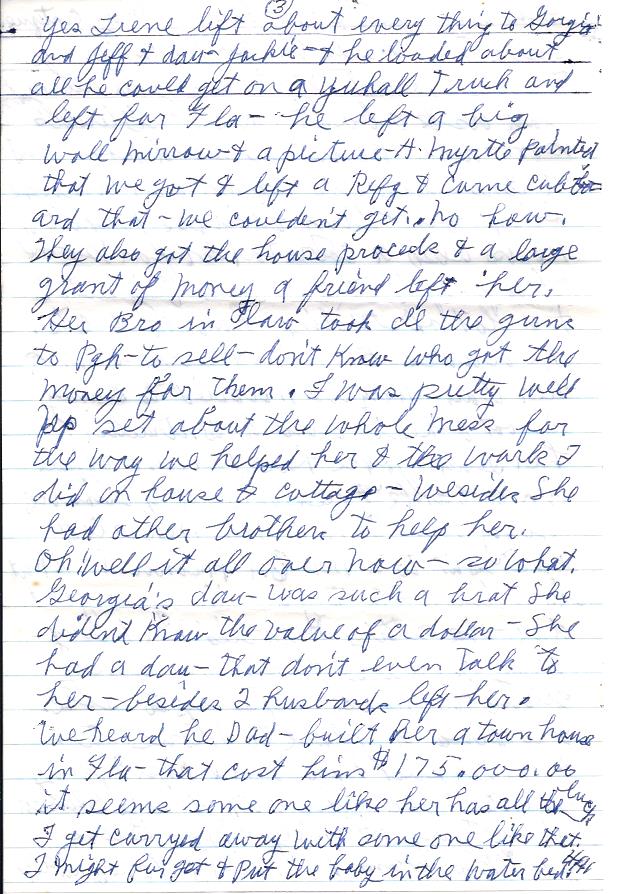 (3)
yes Irene lift about every thing to Gorgia
and Jeff & dau- Jackie-& he loaded about
all he could get on a yuhall Truck and
left for Fla- he left a big
wall mirrow & a picture-A. Myrtle Painted
that we got & left a Refg & Corne cubbo
ard that-we couldn't get. No how.
They also got the house proceds & a large
grant of money a friend left her.
Her Bro in Flaw took all the guns
to Pgh-to sell-don't Know who got the
money for them. I was pretty well
up set about the whole mess for
the way we helped her & the work I
did on house & cottage-besides She
had other brothers to help her.
Oh! well it all over now-so what.
Georgia's dau-was such a brat She
dident Know the value of a dollar-She
had a dau-that don't even Talk to
her-besides 2 husbands left her.
We heard he Dad-built her a town house
in Fla-that cost him $175.000.00
it seems some one like her has all the luck
I get carryed away with some one like that.
I might for get & Put the baby in the water bed.